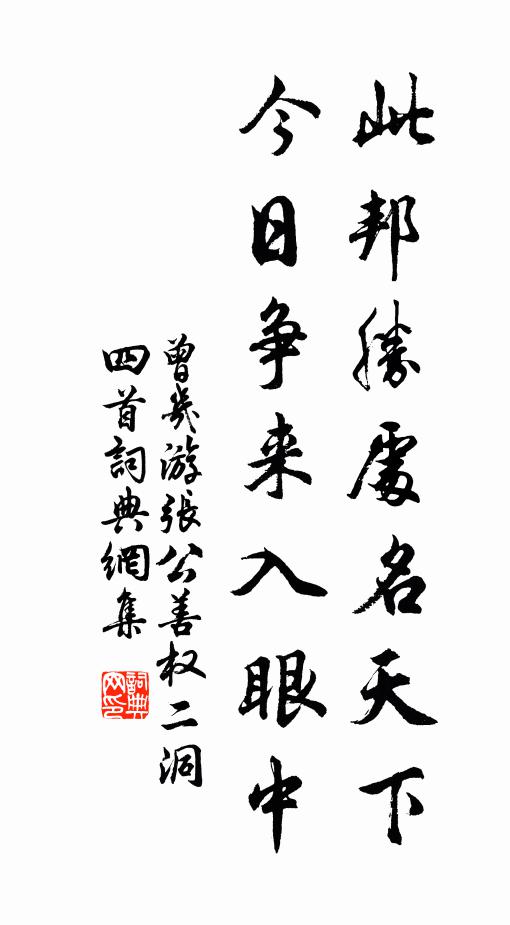 此邦勝處名天下
今日争来入眼中
曾幾游張公善权二洞
四首詞典網集
詞典网印